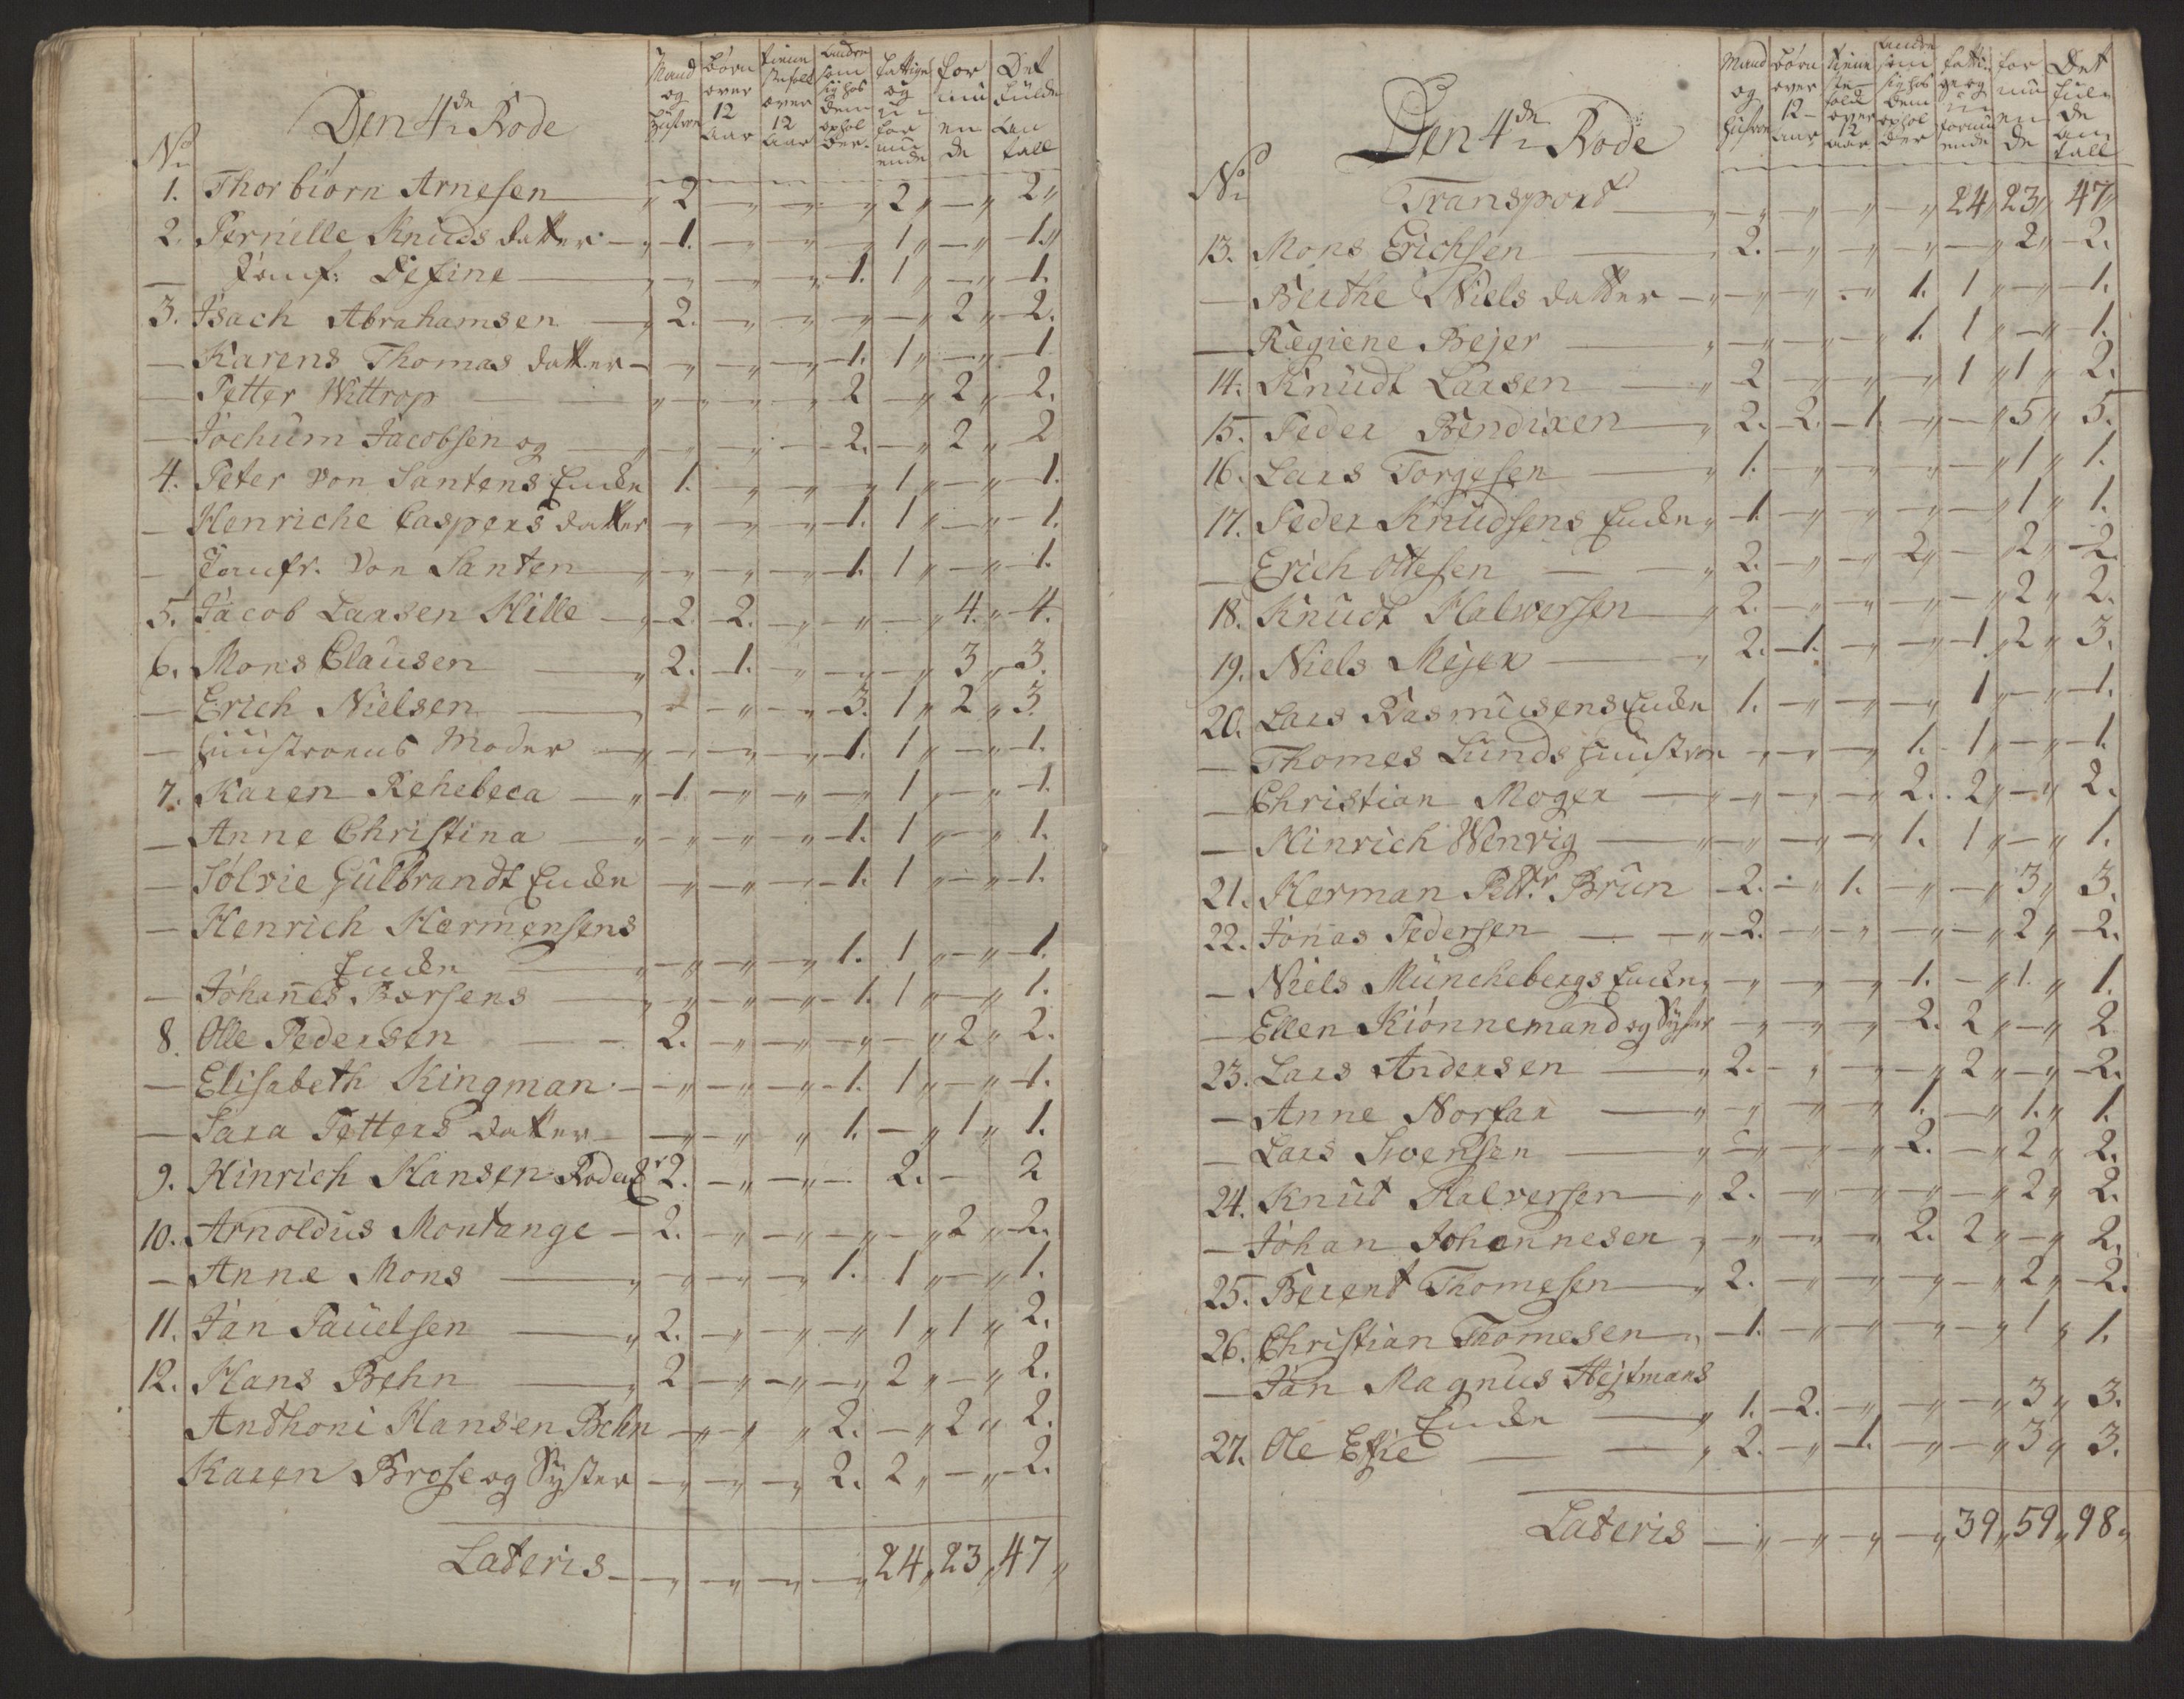 Den 4de Rode
No
Mand og Hustroe
Børn over 12 Aar
Tienneste folk over 12 Aar
Andre som sig hos dem ophol der.
Fattige og u for mu ende
For mu en de
Det fulde An tall
1. Thorbiørn Arnesen — 2 — — — 2 „ — „ 2 „
2. Pernille Knuds datter — 1. — — — 1 „ — „ 1. „
— Jomf: Define — — — — 1. 1 „ — „ 1.
3. Isach Abrahamsen — 2. — — — — „ 2 „ 2.
— Karens Thomas datter — — — — 1. 1 „ — „ 1
— Petter Wittrop — — — — 2 — „ 2 „ 2.
— Jochum Jacobsen og — — — — 2. — „ 2 „ 2
4. Peter von Santens Encke 1. — — — 1 „ — „ 1.
— Henriche Caspers datter — — — 1. 1 „ — „ 1.
— Jomfr. Von Santen — — — — 1. 1 „ — „ 1.
5. Jacob Larsen Hille — 2. 2. — — — „ 4. „ 4.
6. Mons Clausen — 2. 1. — — — „ 3 „ 3.
— Erich Nielsen — — — — 3. 1 „ 2 „ 3.
— Huustroens Moder — — — — 1. 1 „ — „ 1.
7. Karen Rehebeca — 1 — — — 1 „ — „ 1.
— Anne Christina — — — — 1. 1 „ — „ 1.
— Sølvie Gulbrandt Encke — — — 1. 1 „ — „ 1.
— Henrich Hermensens
Encke — — — — 1. 1 „ — „ 1.
— Johannes Børsens — — — — 1. 1 „ — „ 1.
8. Olle Pedersen — 2. — — — — „ 2 „ 2.
— Elisabeth Kingman — — — — 1. 1 „ — „ 1.
— Sara Petters datter — — — „ 1. — „ 1 „ 1.
9. Hinrich Hansen Rodem 2. — — — 2. — 2
10. Arnoldus Montange — 2. — — — — „ 2 „ 2.
— Anne Mons — — — — 1. 1 „ — „ 1.
11. Jan Pauelsen — 2. — — — 1 „ 1 „ 2.
12. Hans Behn — 2 — — — 2 „ — „ 2.
Anthoni Hansen Behn — — „ 2. — „ 2 „ 2.
Karen Brose og Syster — — — 2. 2 „ — „ 2.
Lateris — — — — 24 „ 23 „ 47 „
Den 4de Rode
No
Mand og Hustroe
Børn over 12 Aar
Tienne ste folk over 12 Aar
Andre som sig hos dem ophol der
Fatti ge og u formu ende
For mu en de
Det ful de an tall
Transport — — — — — 24 „ 23 „ 47 „
13. Mons Erichsen — 2. — — — — „ 2 „ 2.
— Berthe Niels datter — — — — 1. 1 „ — „ 1.
— Regiene Bejer — — — — 1. 1 „ — „ 1.
14. Knudt Larsen — 2 — — — 1 „ 1 „ 2.
15. Peder Bendixen — 2. 2. 1. — — „ 5 „ 5.
16. Lars Torgesen — 1. — — — — „ 1 „ 1.
17. Peder Knudsens Encke „ 1. — — — — „ 1 „ 1.
— Erich Ottesen — 2. — — 2 „ — 2 „ 2.
18. Knudt Halversen — 2. — — — — „ 2 „ 2.
19. Niels Mejer — 2. 1. — — 1 „ 2 „ 3.
20. Lars Rasmusens Encke 1. — — — 1 „ — „ 1.
— Thomes Lunds Huustroe — — — 1. 1 „ — „ 1.
— Christian Moger — — — — 2. 2 „ — „ 2.
— Hinrich Wenvig — — — — 1. 1 „ — „ 1.
21. Herman Pettr Brun — 2. — 1. — — „ 3 „ 3.
22. Jonnas Pedersen — 2. — — — — „ 2 „ 2.
— Niels Munchebergs Encke „ — — — 1. — „ 1. „ 1.
— Ellen Kiønnemand og Syster — — — 2. 2 „ — „ 2
23. Lars Andersen — 2. — — — 2 „ — „ 2.
— Anne Norfar — — — — 1. — „ 1. „ 1.
— Lars Svensen — — — — 2. — „ 2 „ 2.
24. Knut Halversen — 2. — — — — „ 2 „ 2.
— Johan Johannesen — — — — 2. 2 „ — „ 2.
25. Berent Thomesen — 2. — — — — „ 2 „ 2.
26. Christian Thomesen „ 1. — — — — „ 1 „ 1.
— Jan Magnus Hejtmans
Encke — 1. 2. — — — „ 3 „ 3.
27. Ole Effie — 2. — 1. — — „ 3 „ 3.
Lateris — — — — — 39 „ 59 „ 98 „